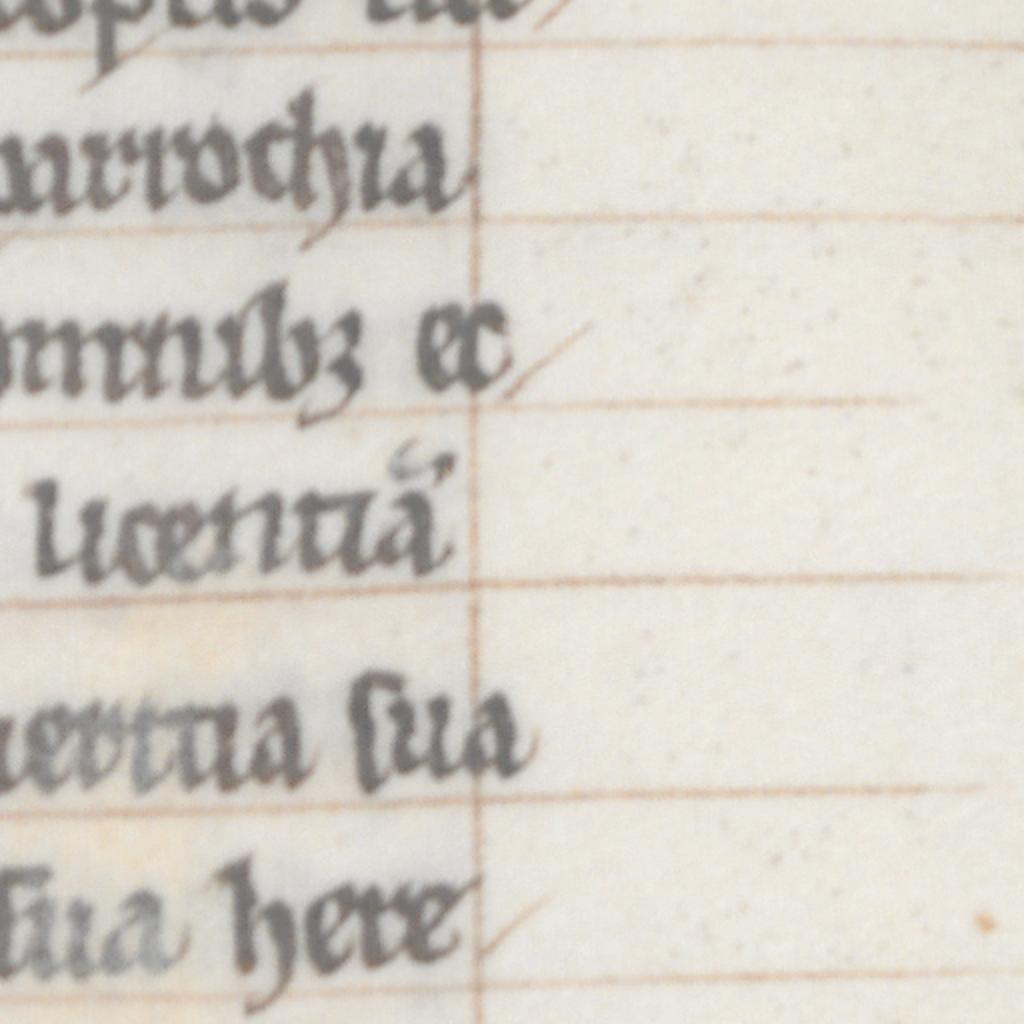 arrochia
omnibꝫ ec
licentiā
sua
sua here